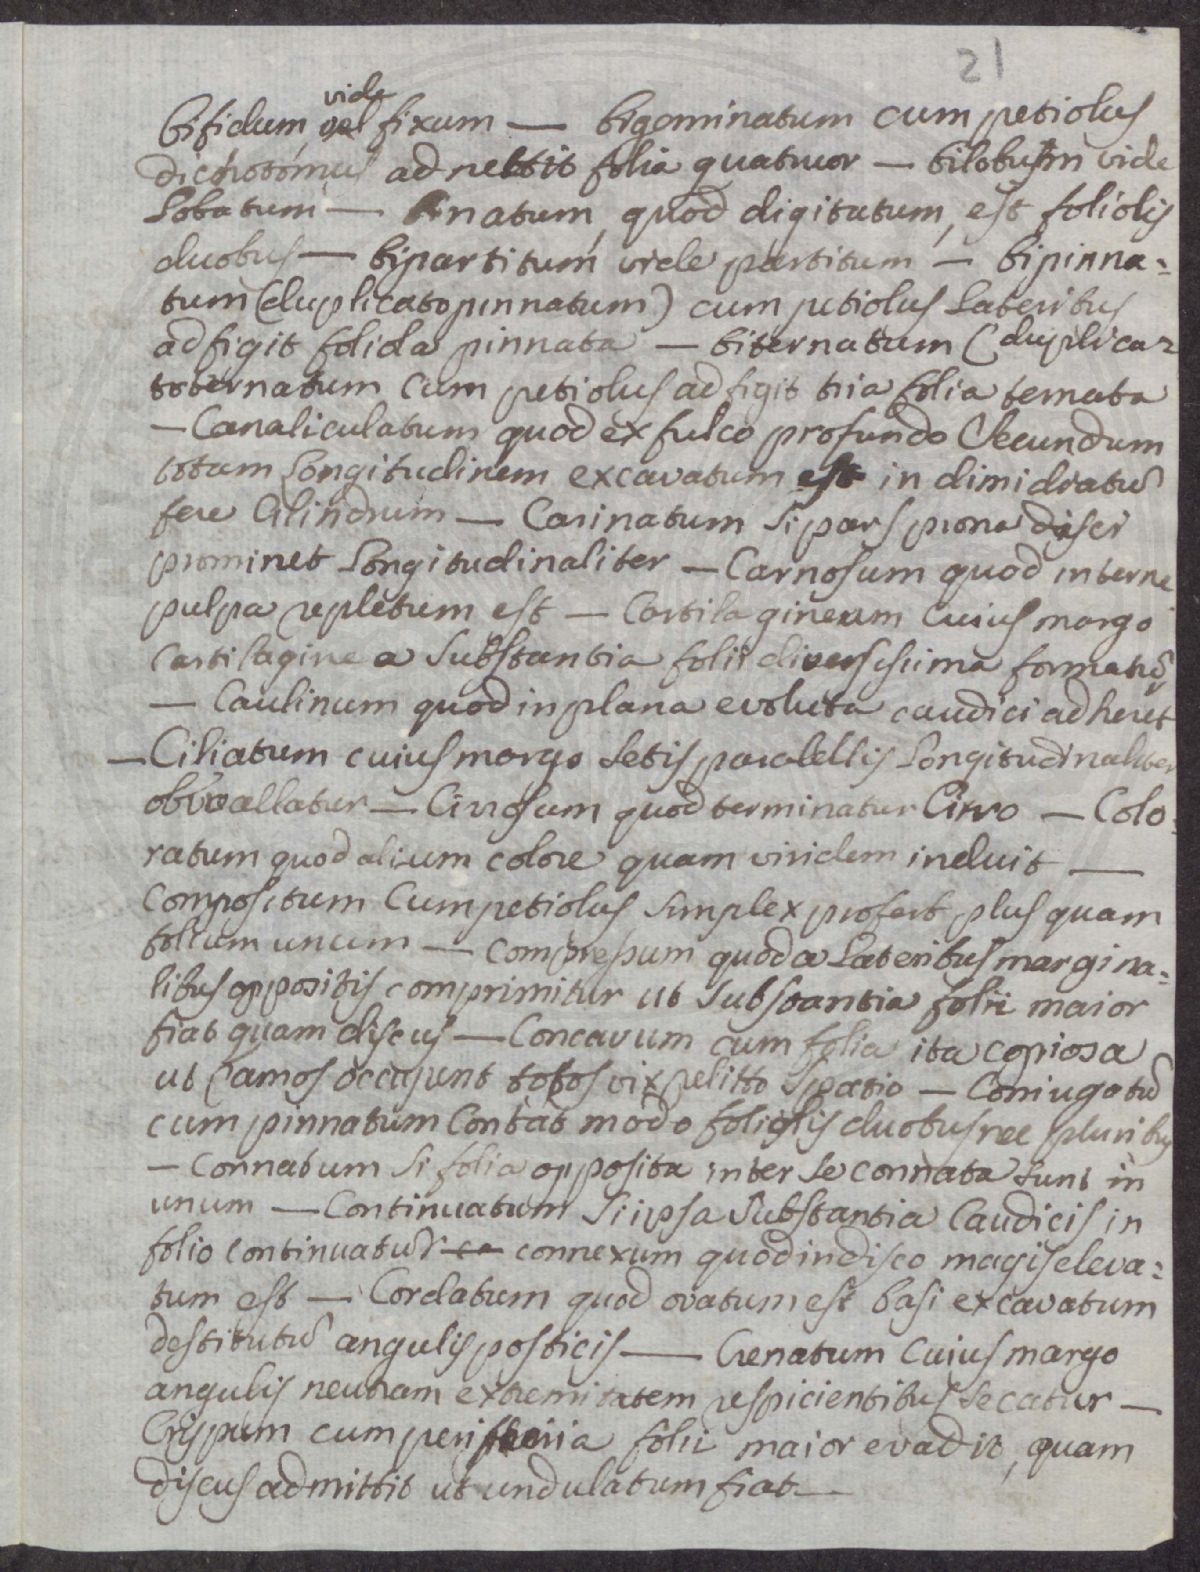 21
vide
bifidum, vel fixum — bigominatum cum petiolus
dichotomus ad nectit folia quatuor — bilobum vide
Lobatum — Binatum, quod digitatum, est foliolis
duobus — bipartitum vide partitum — bipinna-
tum (duplicatopinnatum) cum petiolus Lateribus
adfigit foliola pinnata — biternatum (duplica-
toternatum cum petiolus adfigit tria folia ternata
— Canaliculatum quod ex sulco profundo Secundum
totam Longitudinem excavatum est in dimidiatū
fere Cilindrum — Carinatum si pars prona disci
prominet Longitudinaliter — Carnosum quod interne
pulpa repletum est — Cartilagineum cuius margo
Cartilagine a Substantia folii diversissima formatur
— Caulinum quod in plana evoluta caudici adheret
— Ciliatum cuius margo Setis paralellis Longitudinaliter
obvallatur — Cirrosum quod terminatur Cirro — Colo-
ratum quod alium colore quam viridem induit —
Compositum Cum petiolus simplex profert plus quam
folium unum — Compressum quod a Lateribus margina-
libus oppositis comprimitur ut Substantia folii maior
fiat quam discus — Concavum cum folia ita copiosa
ut ramos occupent totos vix relitto spatio — Coniugatū
cum pinnatum Constat modo foliolis duobus nec pluribus
— Connatum Si folia opposita inter Se connata sunt in
unum — Continuatum Si ipsa Substantia Caudicis in
folio continuatur connexum quod in disco magis eleva-
tum est — Cordatum quod ovatum est basi excavatum
destitutū angulis posticis — Crenatum Cuius margo
angulis neutram extremitatem respicientibus Secatur —
Crispum cum periferia folii maior evadit, quam
discus admittit ut undulatum fiat —